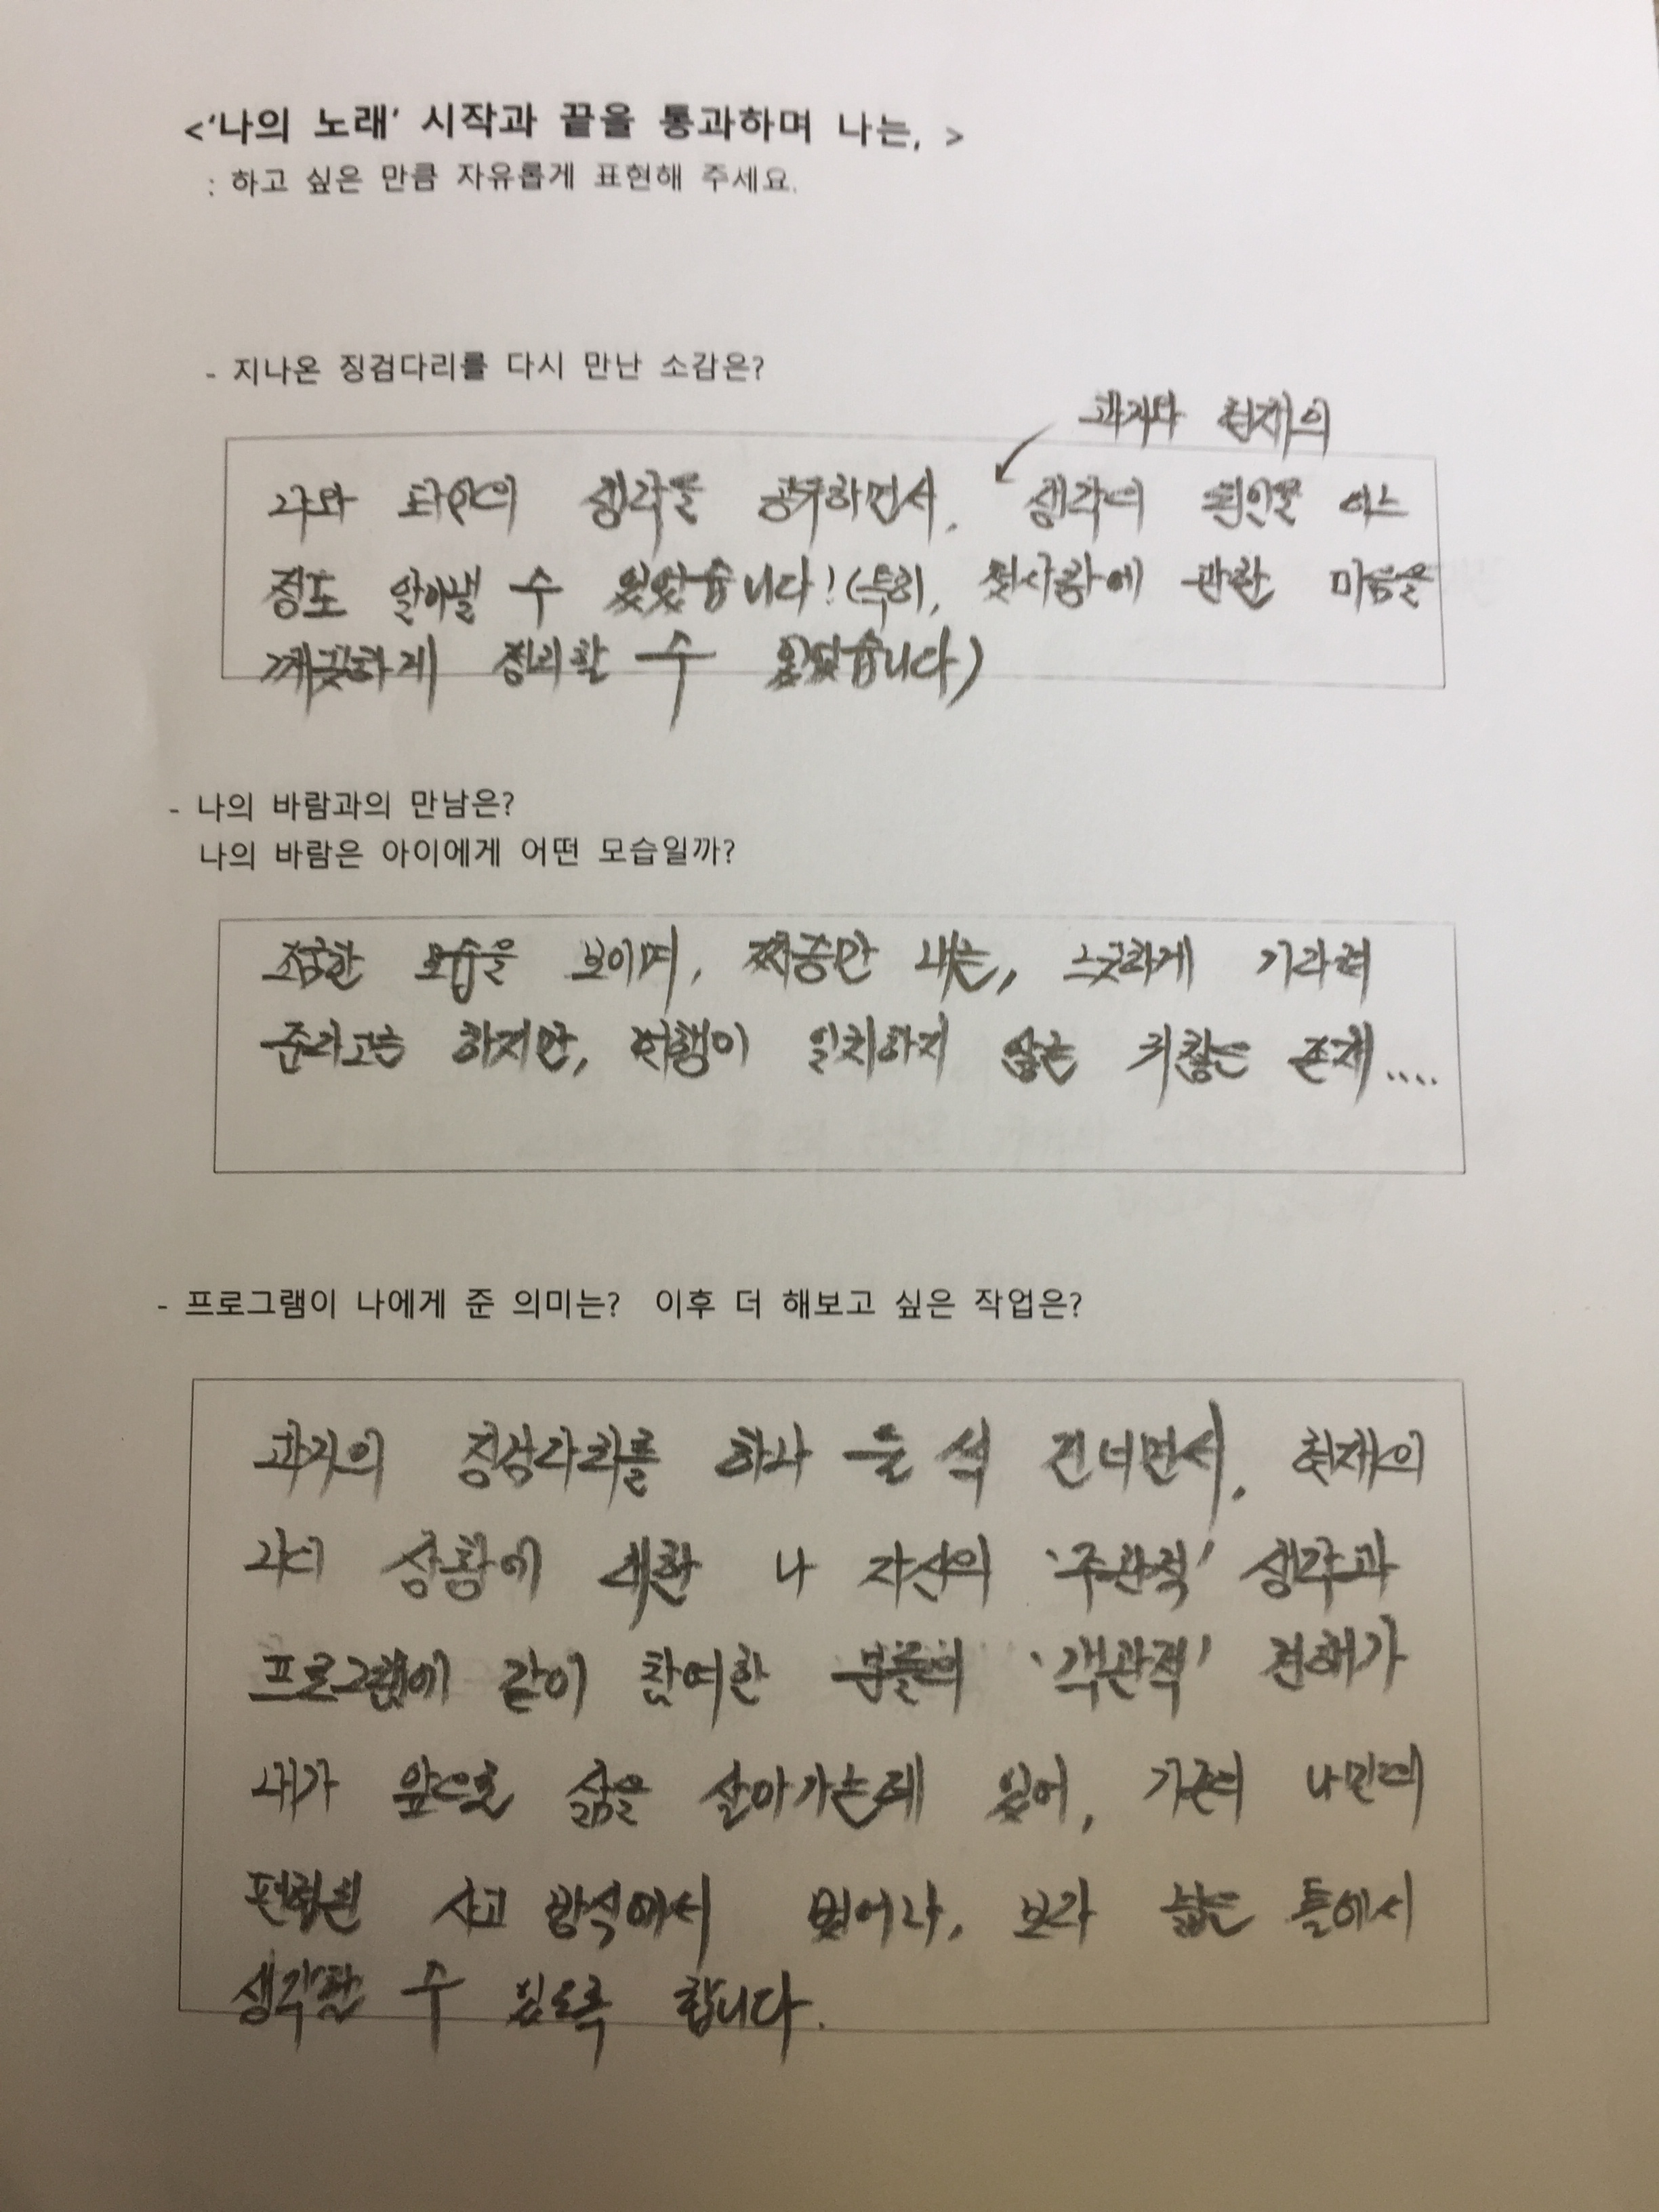 <‘나의 노래’ 시작과 끝을 통과하며 나는, >
: 하고 싶은 만큼 자유롭게 표현해 주세요.
- 지나온 징검다리를 다시 만난 소감은?
과거나 현재의
나와 타인의 생각을 공유하면서, 생각의 원인을 어느
정도 알아낼 수 있었습니다! (특히, 첫사랑에 관한 마음을
깨끗하게 정리할 수 있었습니다)
- 나의 바람과의 만남은?
나의 바람은 아이에게 어떤 모습일까?
조급한 모습을 보이며, 짜증만 내는, 느긋하게 기다려
준다고는 하지만, 언행이 일치하지 않는 귀찮은 존재....
- 프로그램이 나에게 준 의미는? 이후 더 해보고 싶은 작업은?
과거의 징검다리를 하나 둘 씩 건너면서, 현재의
나의 상황에 대한 나 자신의 '주관적' 생각과
프로그램에 같이 참여한 분들의 '객관적' 견해가
내가 앞으로 삶을 살아가는데 있어, 기존의 나만의
편협된 사고 방식에서 벗어나, 보다 넓은 틀에서
생각할 수 있도록 합니다.